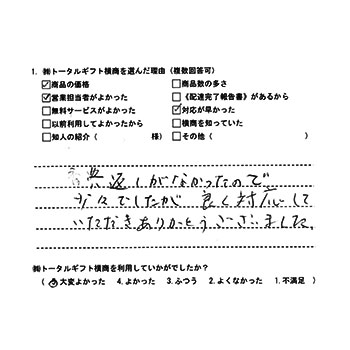 1. ㈱トータルギフト横商を選んだ理由（複数回答可）
☑商品の価格 □商品数の多さ
☑営業担当者がよかった □《配達完了報告書》があるから
□無料サービスがよかった ☑対応が早かった
□以前利用してよかったから □横商を知っていた
□知人の紹介（ 様） □その他（ ）
香典返しがなかったので
少々でしたが 良く対応して
いただきありがとうございました。
㈱トータルギフト横商を利用していかがでしたか？
（ 5.大変よかった 4.よかった 3.ふつう 2.よくなかった 1.不満足 ）